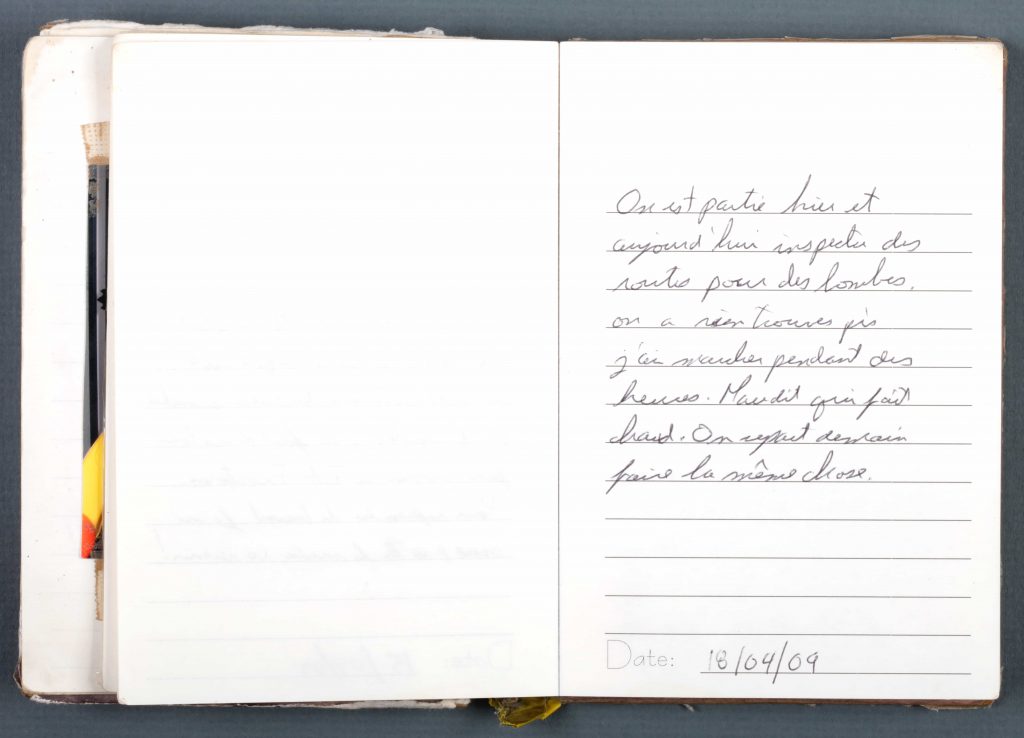 On est partie hier et
aujourd'hui inspecter des
routes pour des bombes.
on a rien trouves pis
j'ai marcher pendant des
heures. Maudit qui fait
chaud. On repart demain
faire la même chose.
Date: 18/04/09